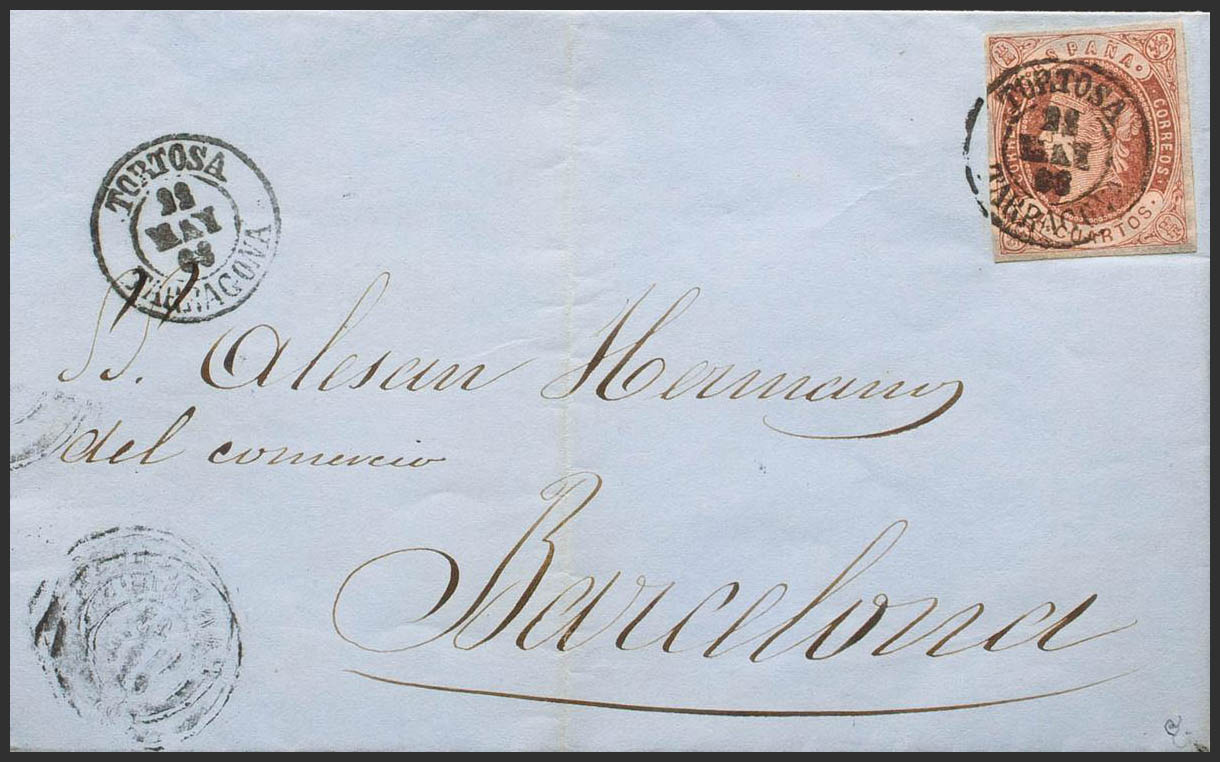 ESPAÑA
CORREOS
4 CUARTOS.
TORTOSA
MAY
TARRAGONA
TORTOSA
22
MAY
63
TARRAGONA
SS. Alesan Hermanos
del comercio
Barcelona